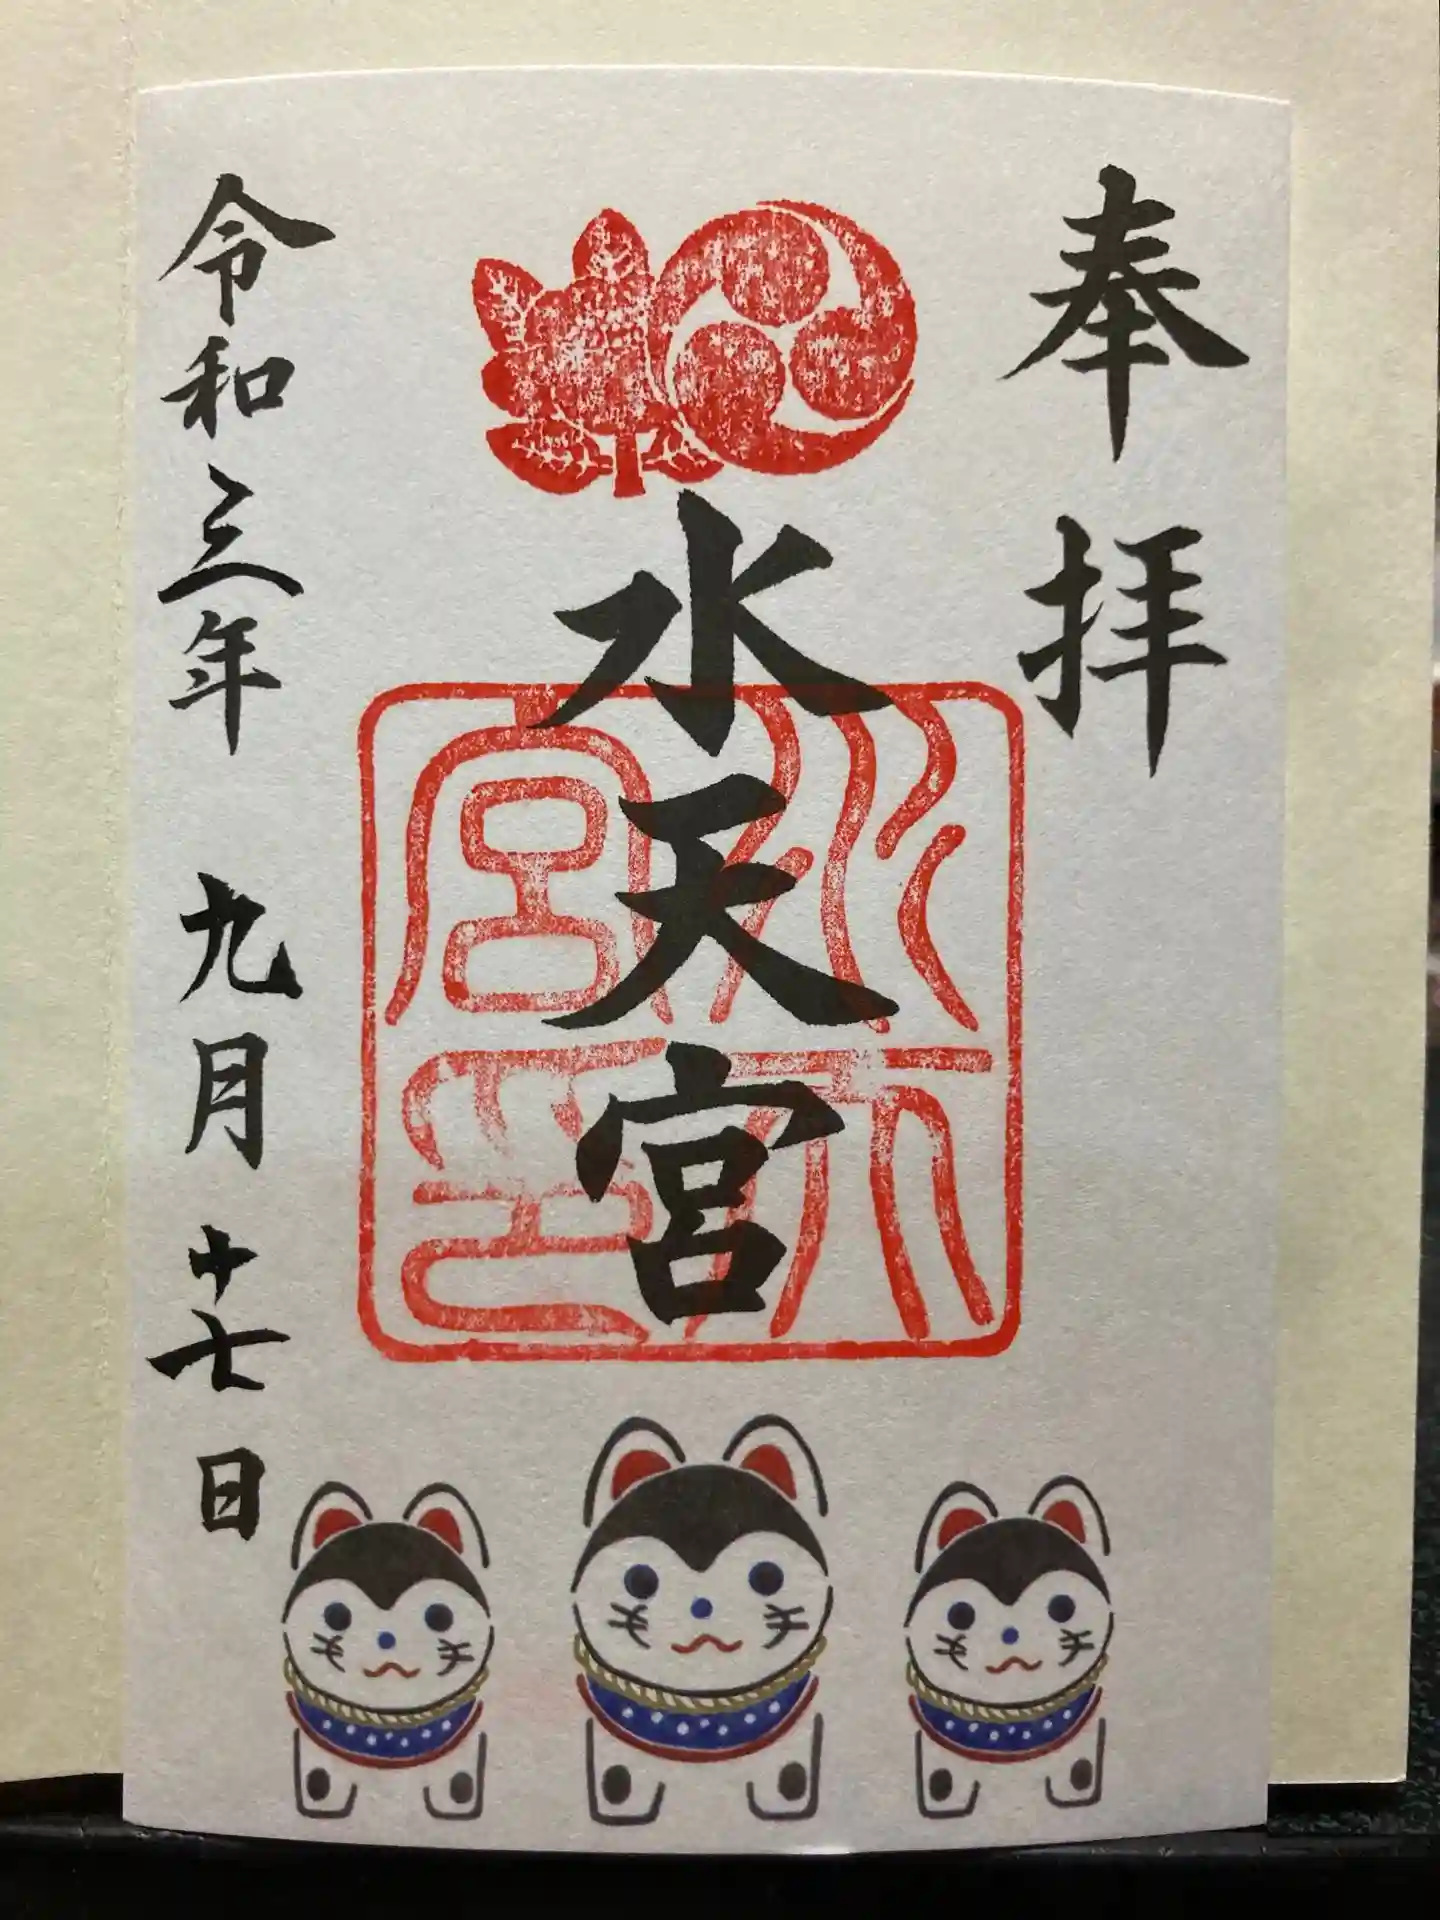 奉拝
水天宮
水天宮印
令和三年 九月 十七日